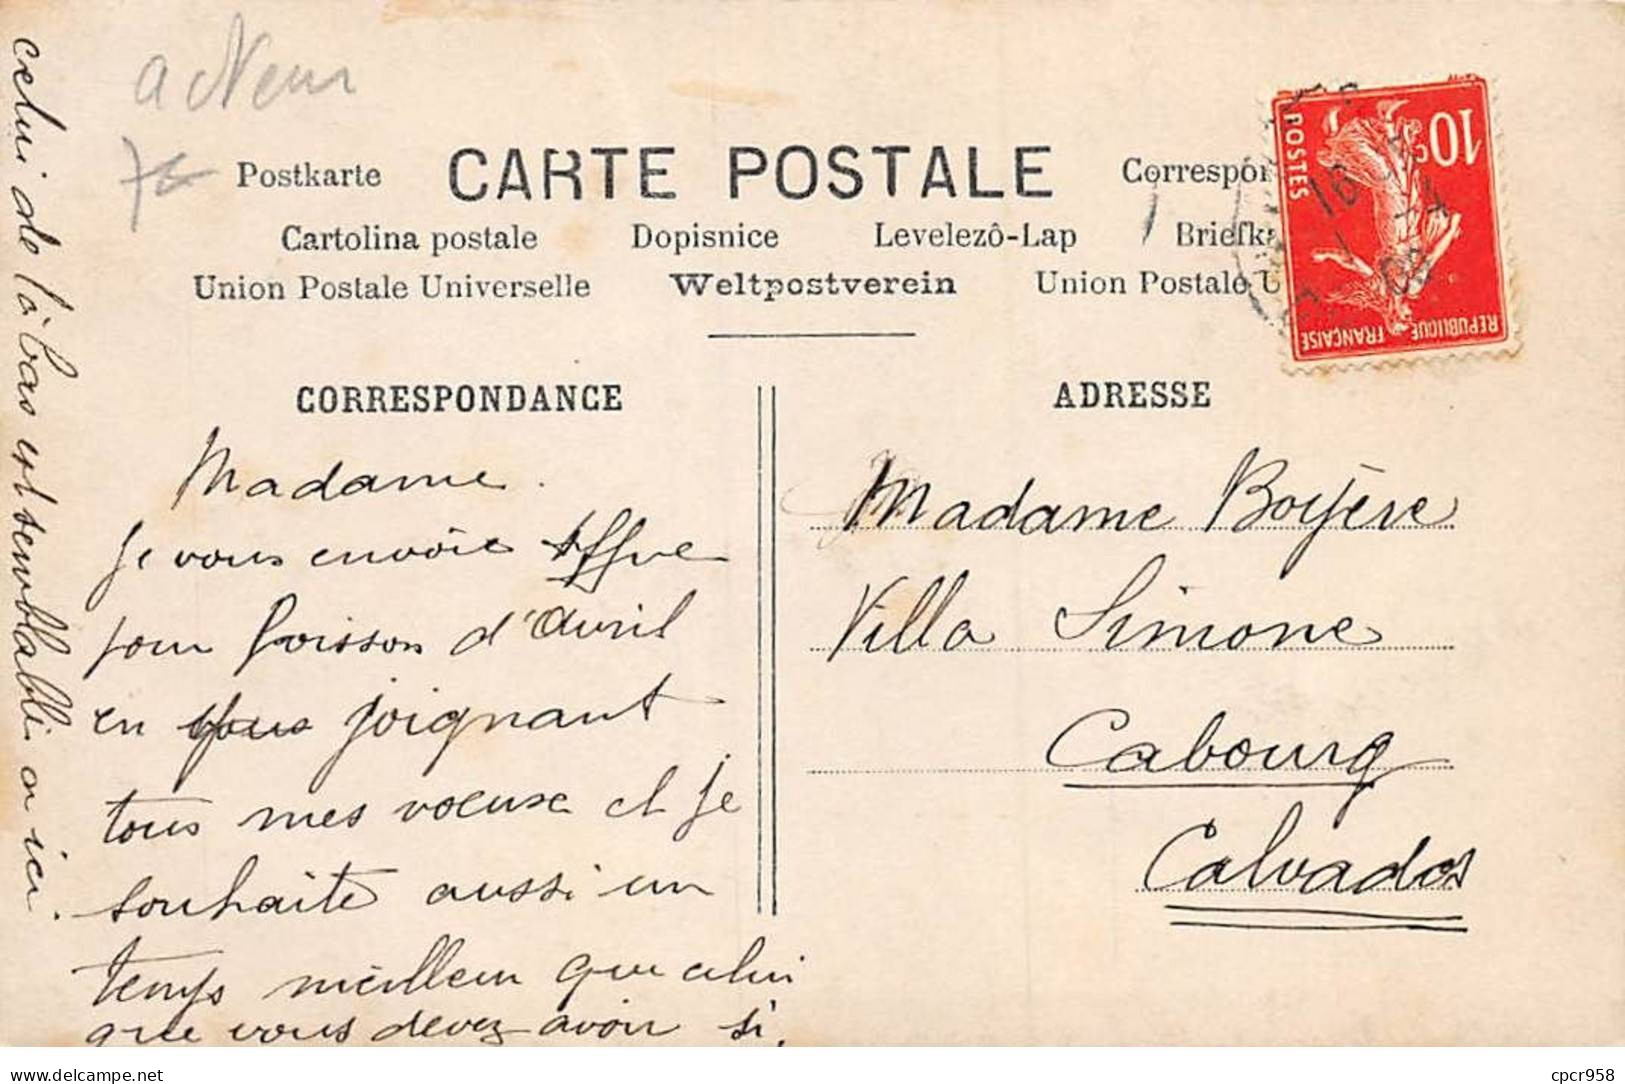 a Neur
Postkarte CARTE POSTALE Correspon
Cartolina postale Dopisnice Levelezô-Lap Briefka
Union Postale Universelle Weltpostverein Union Postale U
10c
POSTES
REPUBLIQUE FRANÇAISE
16
1 - 4
08
CORRESPONDANCE
Madame.
Je vous envoie
pour Poisson d'Avril
en joignant
tous mes voeuse et je
souhaite aussi un
temps meilleur que celui
que vous devez avoir si,
celui de là bas est semblable à ici.
ADRESSE
Madame Boyère
Villa Simone
Cabourg
Calvados
delcampe.net
cpcr958